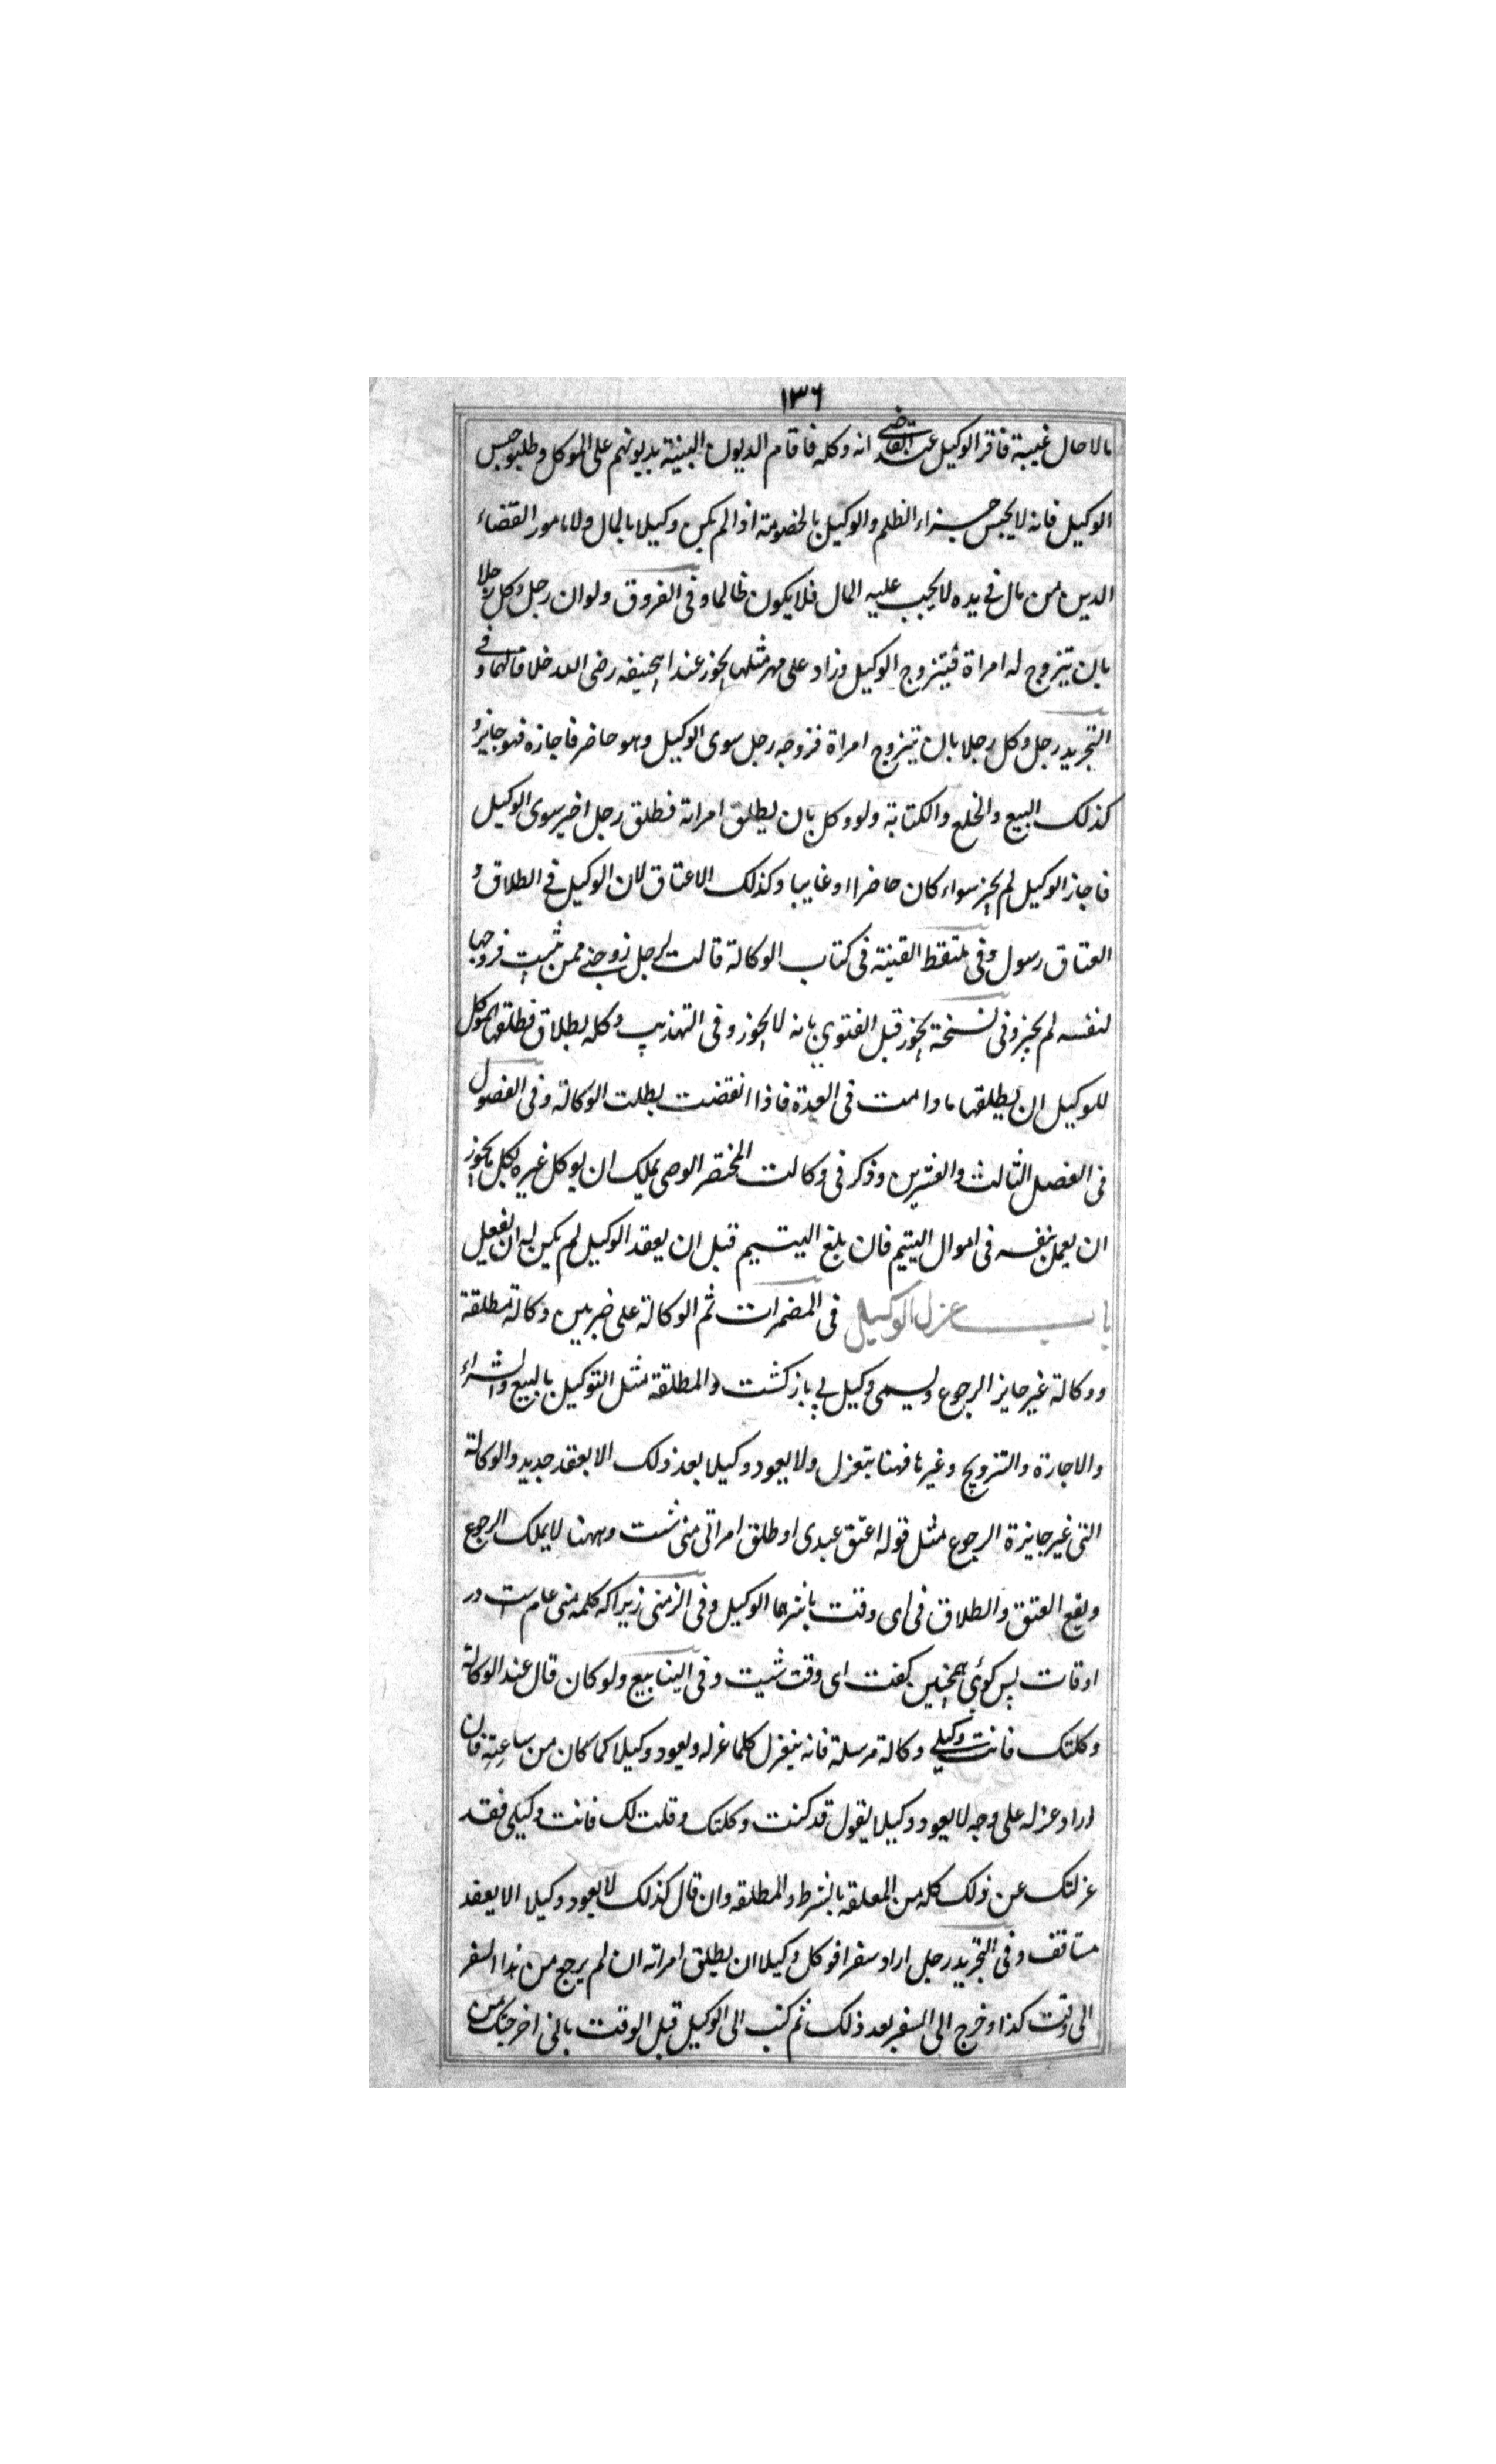 ١٣٦
بالاحال غيبة فاقر الوكيل عند القاضي انه وكله فاقام الديون البينة بديونهم على الموكل وطلبوا حبس
الوكيل فانه لا يحبس جزاء الظلم والوكيل بالخصومة اذا لم يكن وكيلا بالمال ولا مامور القضاء
الدين من مال في يده لا يجب عليه المال فلا يكون ظالما وفى الفروق ولو ان رجل وكل رجلا
بان يتزوج له امراة فيتزوج الوكيل وزاد على مهر مثلها يجوز عند ابيحنيفه رضى الله خلافا لهما وفي
التجريد رجل وكل رجلا بان يتزوج امراة فزوجه رجل سوى الوكيل وهو حاضر فاجازه فهو جايز و
كذلك البيع والخلع والكتابة ولو وكل بان يطلق امراته فطلق رجل اخير سوى الوكيل
فاجاز الوكيل لم يجز سواء كان حاضرا او غايبا وكذلك الاعتاق لان الوكيل في الطلاق و
العتاق رسول وفى ملتقط القينة فى كتاب الوكالة قالت لرجل زوجنے ممن شيت فزوجها
لنفسه لم يجز وفى نسخة يجوز قيل الفتوي بانه لا يجوز وفى التهذيب وكله بطلاق فطلقها الموكل
للوكيل ان يطلقها ما دامت فى العدة فاذا انقضت بطلت الوكالة وفى الفصول
فى الفصل الثالث والعشرين وذكر فى وكالت المختصر الوصى يملك ان يوكل غيره بكل ما يجوز
ان يعمل بنفسه فى اموال اليتيم فان بلغ اليتيم قبل ان يعقد الوكيل لم يكن له ان يفعل
باب عزل الوكيل فى المضمرات ثم الوكالة على ضربين وكالة مطلقة
ووكالة غير جايز الرجوع ويسمى وكيل بي بازكشت والمطلقة مثل التوكيل بالبيع والشراء
والاجارة والتزويج وغيرها فهنا بتعزل ولا يعود وكيلا بعد ذلك الا بعقد جديد والوكالة
التى غير جايزة الرجوع مثل قوله اعتق عبدى او طلق امراتى متى شت وههنا لا يملك الرجوع
ويقع العتق والطلاق فى اى وقت باشرهما الوكيل وفى الزمنى زيراكه كلمه متى عام ست در
اوقات پس كوئي همچنين كفت اى وقت شيت وفى الينابيع ولو كان قال عند الوكالة
وكلتك فانت وكيلي وكالة مرسلة فانه ينعزل كلما عزله ويعود وكيلا كما كان من ساعته فان
اراد عزله على وجه لا يعود وكيلا يقول قد كنت وكلتك وقلت لك فانت وكيلى فقد
عزلتك عن ذلك كله من المعلقه بالشرط والمطلقه وان قال كذلك لا يعود وكيلا الا يعقد
مستانف وفى التجريد رجل اراد سفرا فوكل وكيلا ان يطلق امراته ان لم يرجع من هذا السفر
الى وقت كذا وخرج الى السفر بعد ذلك ثم كتب الى الوكيل قبل الوقت بانى اخرجتك من